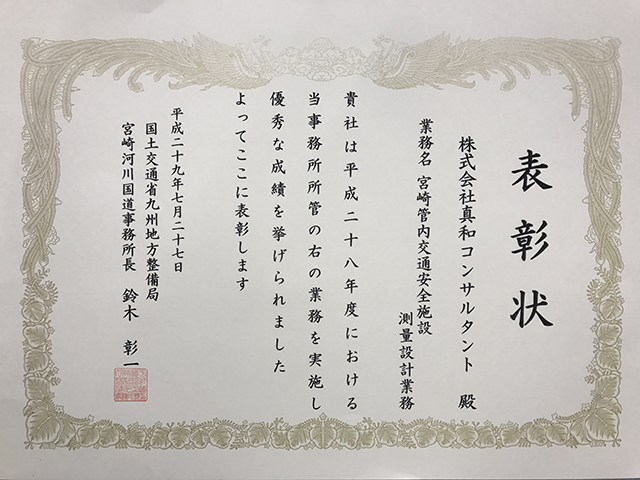 表彰状
株式会社真和コンサルタント 殿
業務名 宮崎管内交通安全施設
測量設計業務
貴社は平成二十八年度における
当事務所所管の右の業務を実施し
優秀な成績を挙げられました
よってここに表彰します
平成二十九年七月二十七日
国土交通省九州地方整備局
宮崎河川国道事務所長 鈴木 彰一